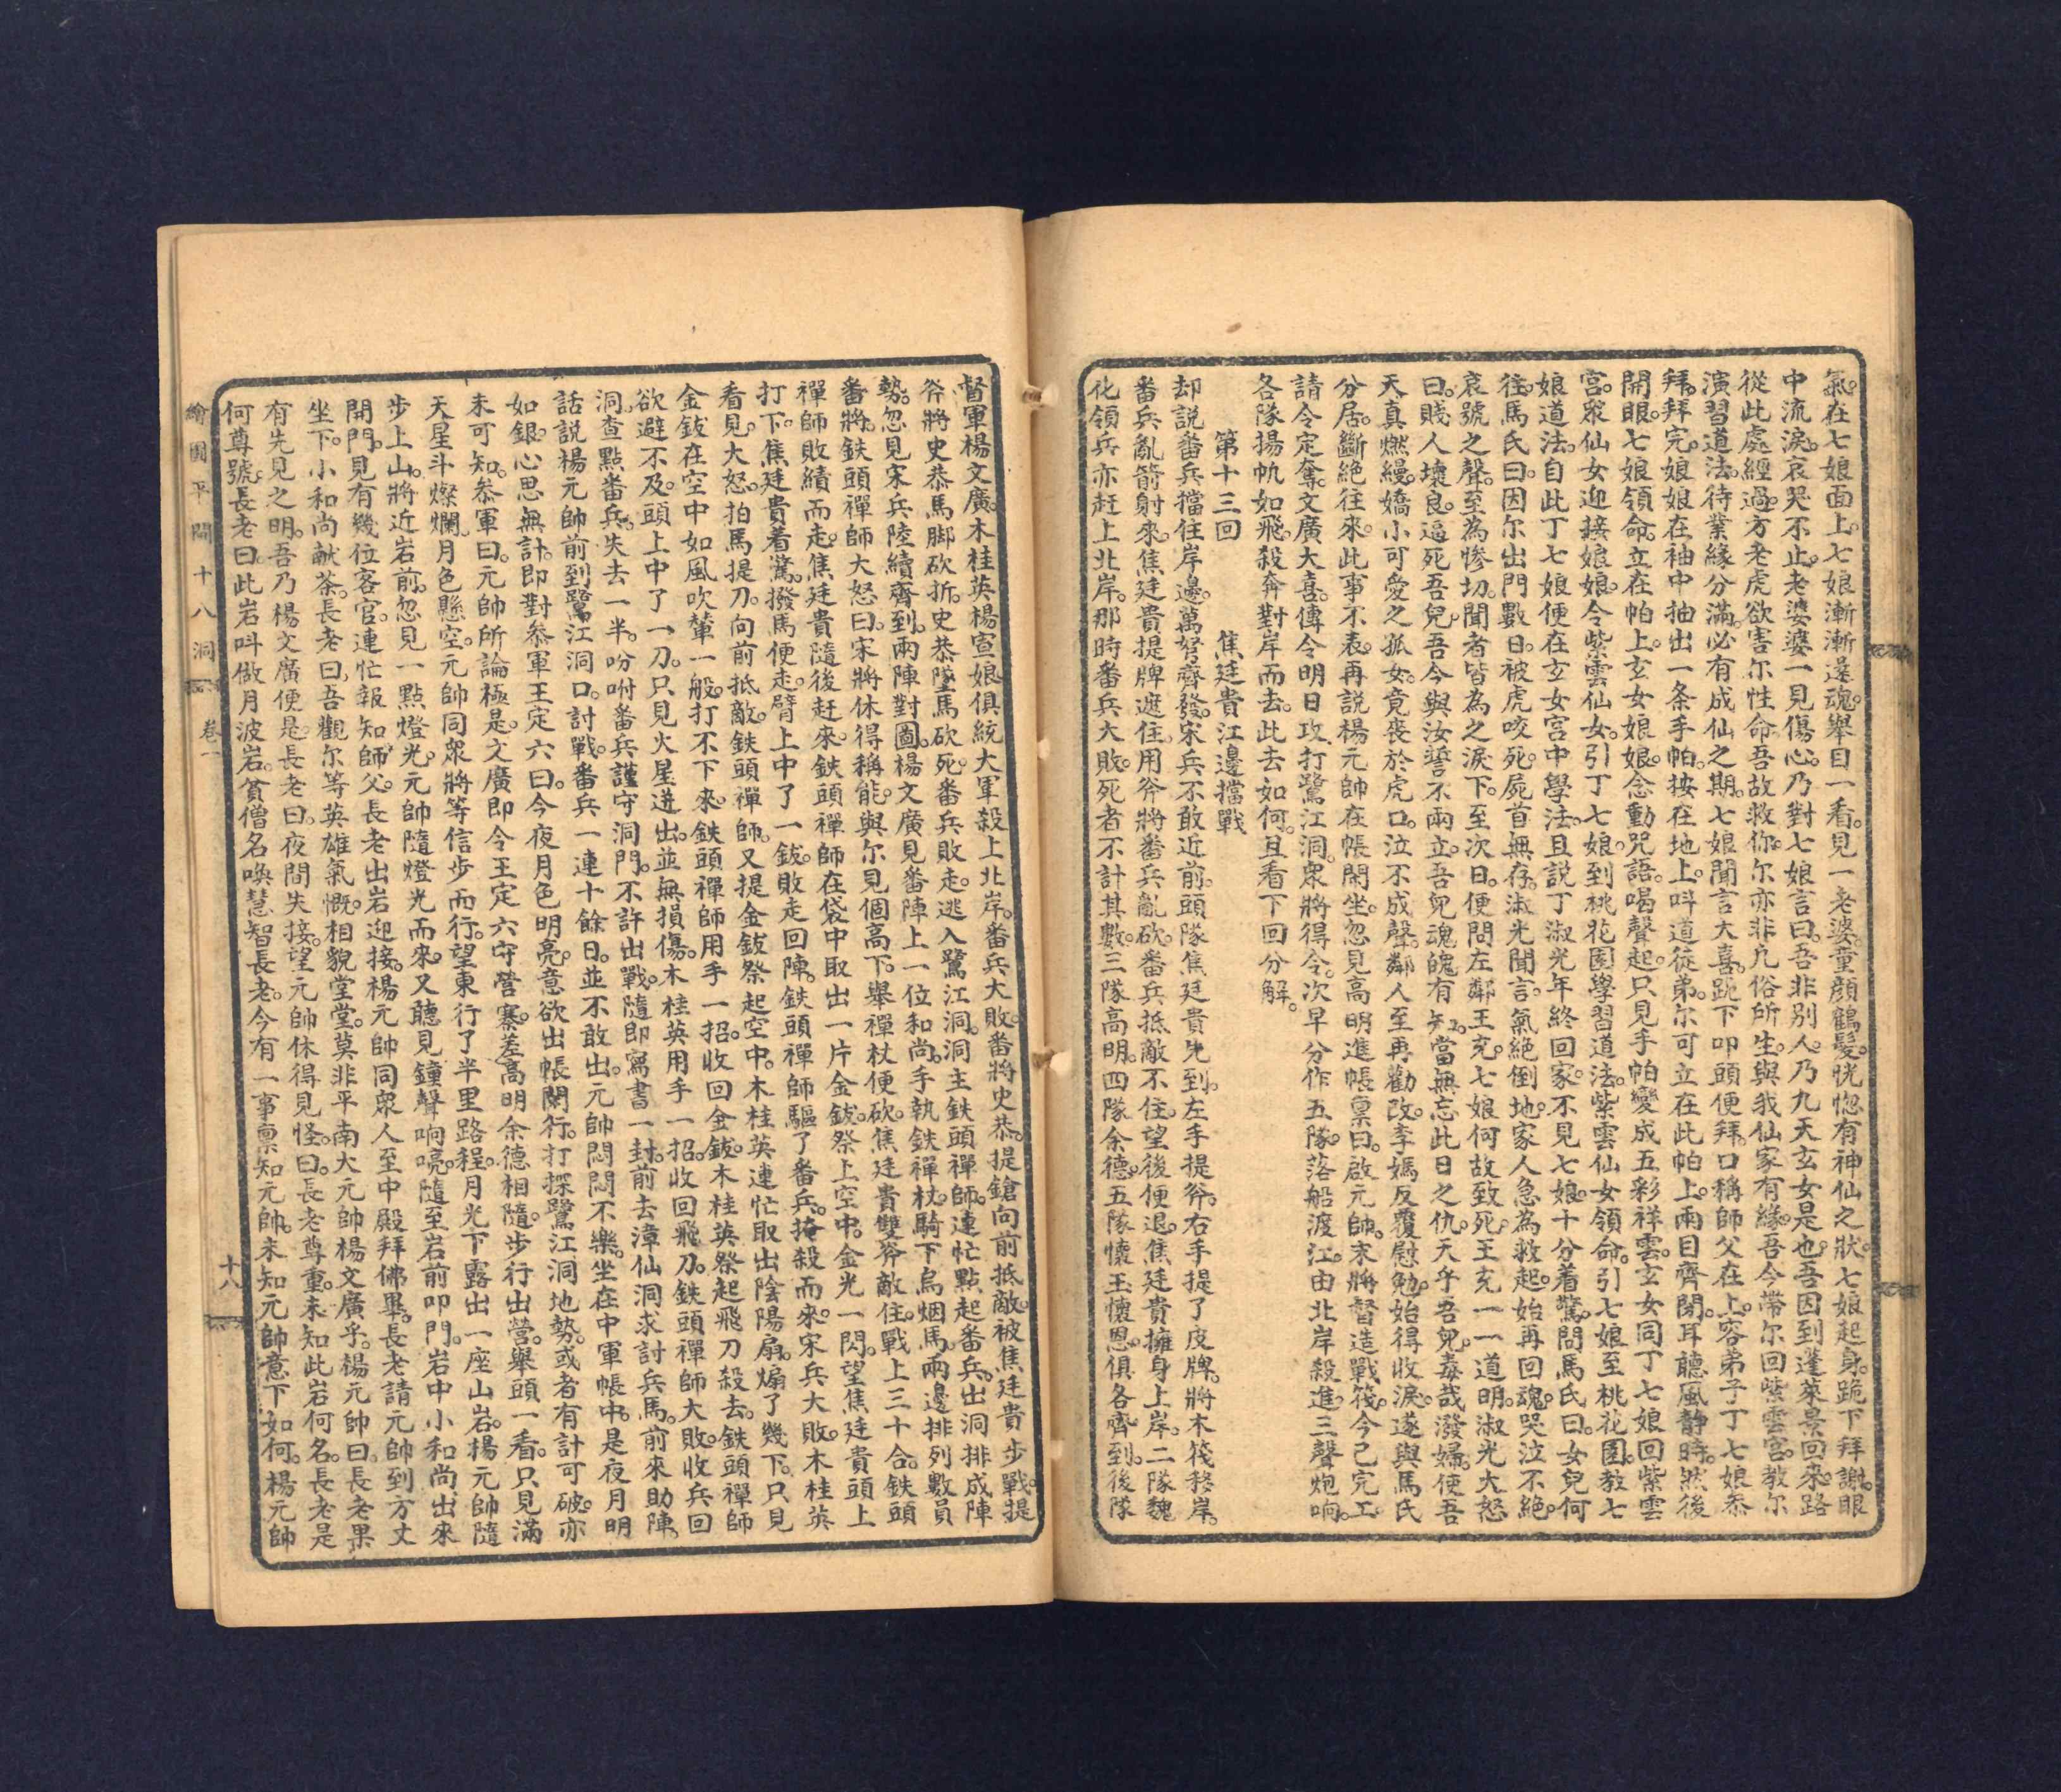 氣。在七娘面上。七娘漸漸還魂。舉目一看。見一老婆。童顔鶴髮。恍惚有神仙之狀。七娘起身。跪下拜謝。眼
中流淚。哀哭不止。老婆婆一見傷心。乃對七娘言曰。吾非別人。乃九天玄女是也。吾因到蓬萊景回來。路
從此處經過。方老虎欲害尔性命。吾故救你。尔亦非凡俗所生。與我仙家有緣。吾今帶尔回紫雲宮。教尔
演習道法。待業緣分滿。必有成仙之期。七娘聞言大喜。跪下叩頭便拜。口稱師父在上。容弟子丁七娘叅
拜。拜完。娘娘在袖中抽出一条手帕。按在地上。呌道徒弟。尔可立在此帕上。兩目齊閉。耳聽風静時。然後
開眼。七娘領命。立在帕上。玄女娘娘。念動咒語。喝聲起。只見手帕變成五彩祥雲。玄女同丁七娘回紫雲
宮。眾仙女迎接娘娘。令紫雲仙女。引丁七娘。到桃花園學習道法。紫雲仙女領命。引七娘至桃花園。教七
娘道法。自此丁七娘便在玄女宮中學法。且説丁淑光年終回家。不見七娘。十分着驚。問馬氏曰。女兒何
往。馬氏曰。因尔出門數日。被虎咬死。屍首無存。淑光聞言。氣絕倒地。家人急為救起。始再回魂。哭泣不絕。
哀號之聲。至為慘切。聞者皆為之淚下。至次日。便問左鄰王充。七娘何故致死。王充一一道明。淑光大怒
曰。賤人壞良。逼死吾兒。吾今與汝誓不兩立。吾兒魂魄有知。當無忘此日之仇。天乎吾兒。毒哉潑婦。使吾
天真燃縵。嬌小可愛之孤女。竟喪於虎口。泣不成聲。鄰人至再勸改。李媽反覆慰勉。始得收淚。遂與馬氏
分居。斷絕往來。此事不表。再説楊元帥在帳閑坐。忽見高明進帳禀曰。啟元帥。末將督造戰筏。今已完工。
請令定奪。文廣大喜。傳令明日攻打鷺江洞。眾將得令。次早分作五隊。落船渡江。由北岸殺進。三聲炮响。
各隊揚帆如飛。殺奔對岸而去。此去如何。且看下回分解。
第十三回　焦廷貴江邊擋戰
却説番兵擋住岸邊。萬弩齊發。宋兵不敢近前。頭隊焦廷貴先到。左手提斧。右手提了皮牌。將木筏移岸。
番兵亂箭射來。焦廷貴提牌遮住。用斧將番兵亂砍。番兵抵敵不住。望後便退。焦廷貴擁身上岸。二隊魏
化領兵亦赶上北岸。那時番兵大敗。死者不計其數。三隊高明。四隊余德。五隊懷玉懷恩。俱各齊到。後隊
督軍楊文廣。木桂英楊宣娘。俱統大軍。殺上北岸。番兵大敗。番將史恭。提鎗向前抵敵。被焦廷貴步戰。提
斧將史恭馬脚砍折。史恭墜馬砍死。番兵敗走。逃入鷺江洞。洞主鉄頭禪師。連忙點起番兵。出洞排成陣
勢。忽見宋兵陸續齊到。兩陣對圖。楊文廣見番陣上一位和尚。手執鉄禪杖。騎下烏烟馬。兩邊排列數員
番將。鉄頭禪師大怒曰。宋將休得稱能。與尔見個高下。舉禪杖便砍。焦廷貴雙斧敵住。戰上三十合。鉄頭
禪師敗績而走。焦廷貴隨後赶來。鉄頭禪師在袋中取出一片金鈸。祭上空中。金光一閃。望焦廷貴頭上
打下。焦廷貴着驚。撥馬便走。臂上中了一鈸。敗走回陣。鉄頭禪師驅了番兵。掩殺而來。宋兵大敗。木桂英
看見大怒。拍馬提刀。向前抵敵。鉄頭禪師。又提金鈸祭起空中。木桂英連忙取出陰陽扇。煽了幾下。只見
金鈸在空中如風吹輦一般。打不下來。鉄頭禪師用手一招。收回金鈸。木桂英祭起飛刀殺去。鉄頭禪師
欲避不及。頭上中了一刀。只見火星迸出。並無損傷。木桂英用手一招。收回飛刀。鉄頭禪師大敗。收兵回
洞。查點番兵。失去一半。吩咐番兵。謹守洞門。不許出戰。隨即寫書一封。前去漳仙洞求討兵馬。前來助陣。
話説楊元帥前到鷺江洞口。討戰。番兵一連十餘日。並不敢出。元帥悶悶不樂。坐在中軍帳中。是夜月明
如銀。心思無計。即對叅軍王定六曰。今夜月色明亮。意欲出帳閑行。打探鷺江洞地勢。或者有計可破。亦
未可知。叅軍曰。元帥所論極是。文廣即令王定六守營寨。差高明余德相隨。步行出營。舉頭一看。只見滿
天星斗燦爛。月色懸空。元帥同眾將等信步而行。望東行了半里路程。月光下露出一座山岩。楊元帥隨
步上山。將近岩前。忽見一點燈光。元帥隨燈光而來。又聽見鐘聲响喨。隨至岩前叩門。岩中小和尚出來
開門。見有幾位客官。連忙報知師父。長老出岩迎接。楊元帥同眾人至中殿拜佛畢。長老請元帥到方丈
坐下。小和尚献茶。長老曰。吾觀尔等英雄氣慨。相貌堂堂。莫非平南大元帥楊文廣乎。楊元帥曰。長老果
有先見之明。吾乃楊文廣便是。長老曰。夜間失接。望元帥休得見怪。曰。長老尊重。未知此岩何名。長老是
何尊號。長老曰。此岩呌做月波岩。貧僧名喚慧智長老。今有一事禀知元帥。未知元帥意下如何。楊元帥
繪圖平閩十八洞　卷一　十八